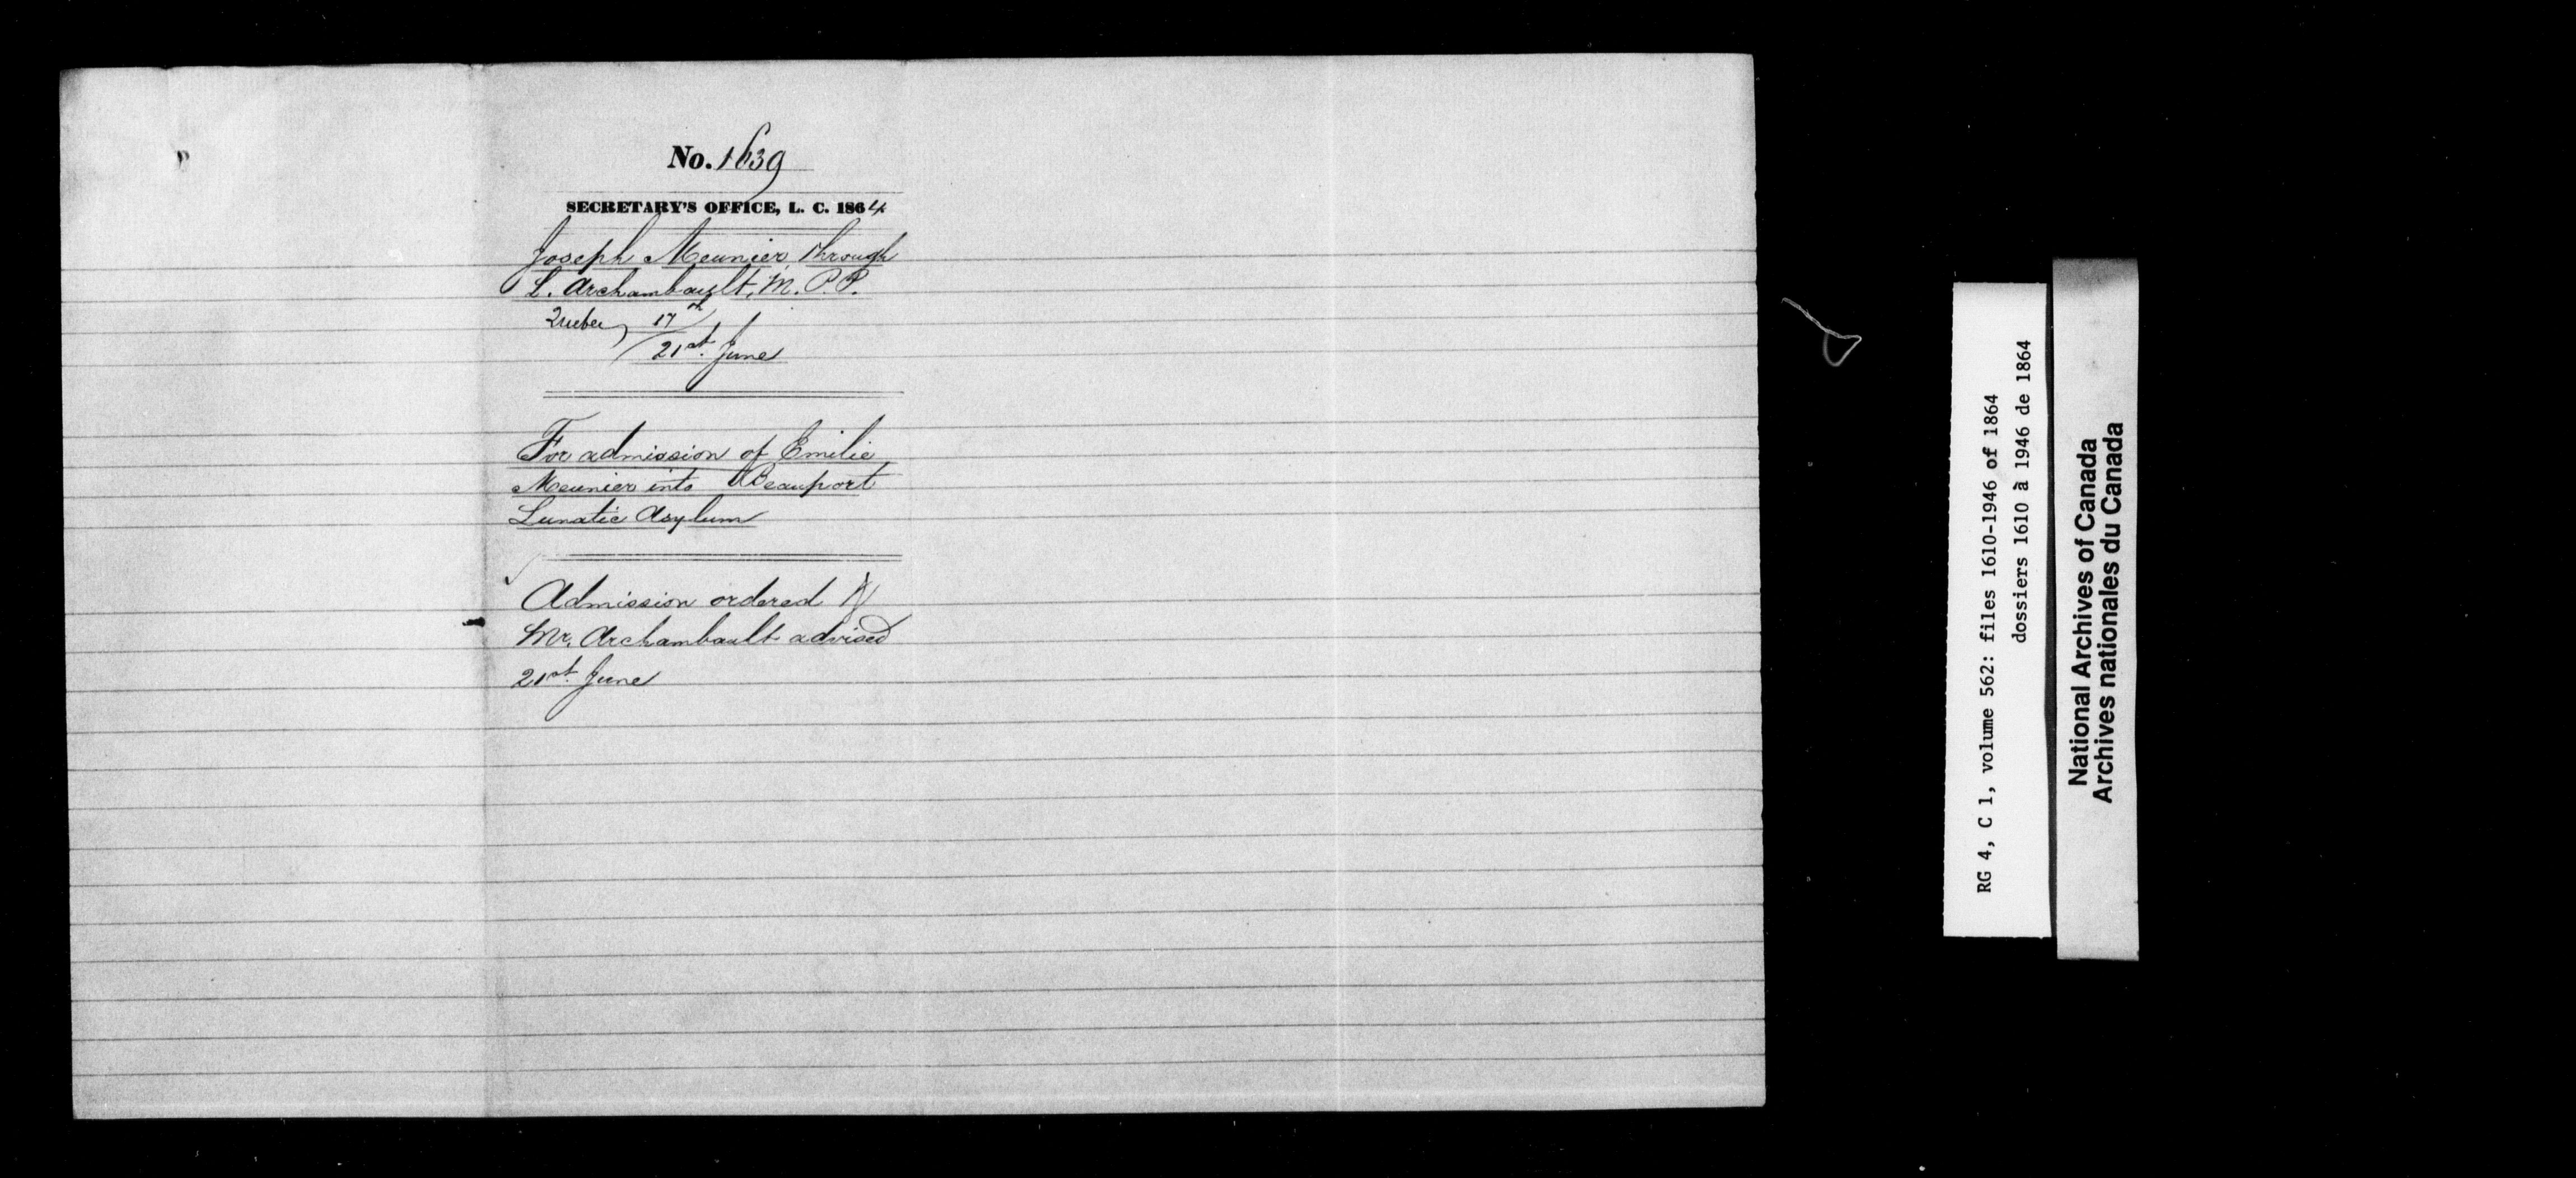 No. 1639
SECRETARY'S OFFICE, L. C. 1864
Joseph Meunier, through
L. Archambault, M. P. P.
Quebec, 17th
21st June
For admission of Emilie
Meunier into Beauport
Lunatic Asylum
Admission ordered &
Mr. Archambault advised
21st June
RG 4, C 1, volume 562: files 1610-1946 of 1864
dossiers 1610 à 1946 de 1864
National Archives of Canada
Archives nationales du Canada